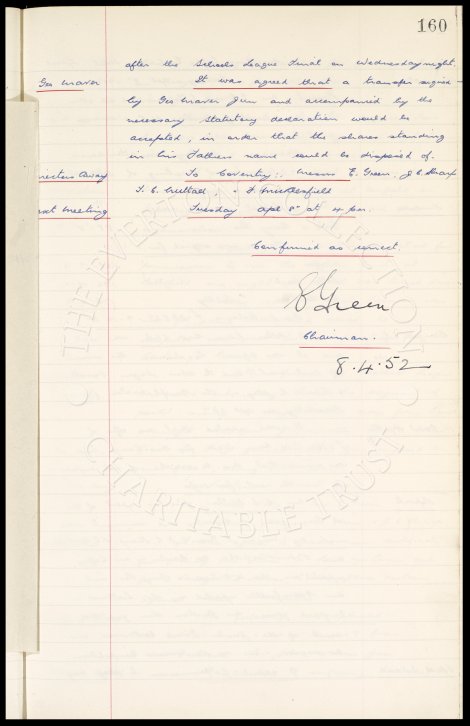 160
after the Schools League Final on Wednesday night.
Geo Mawer It was agreed that a transfer signed
by Geo Mawer Jun and accompanied by the
necessary Statutory declaration would be
accepted, in order that the shares standing
in his Fathers name could be disposed of.
irectors Away To Coventry:. Messrs E. Green, J C Sharp
T. C. Nuttall
ext Meeting Tuesday Apl 8th at 4 P.m.
Confirmed as correct
E Green
Chairman.
8.4.52
THE EVERTON COLLECTION
CHARITABLE TRUST